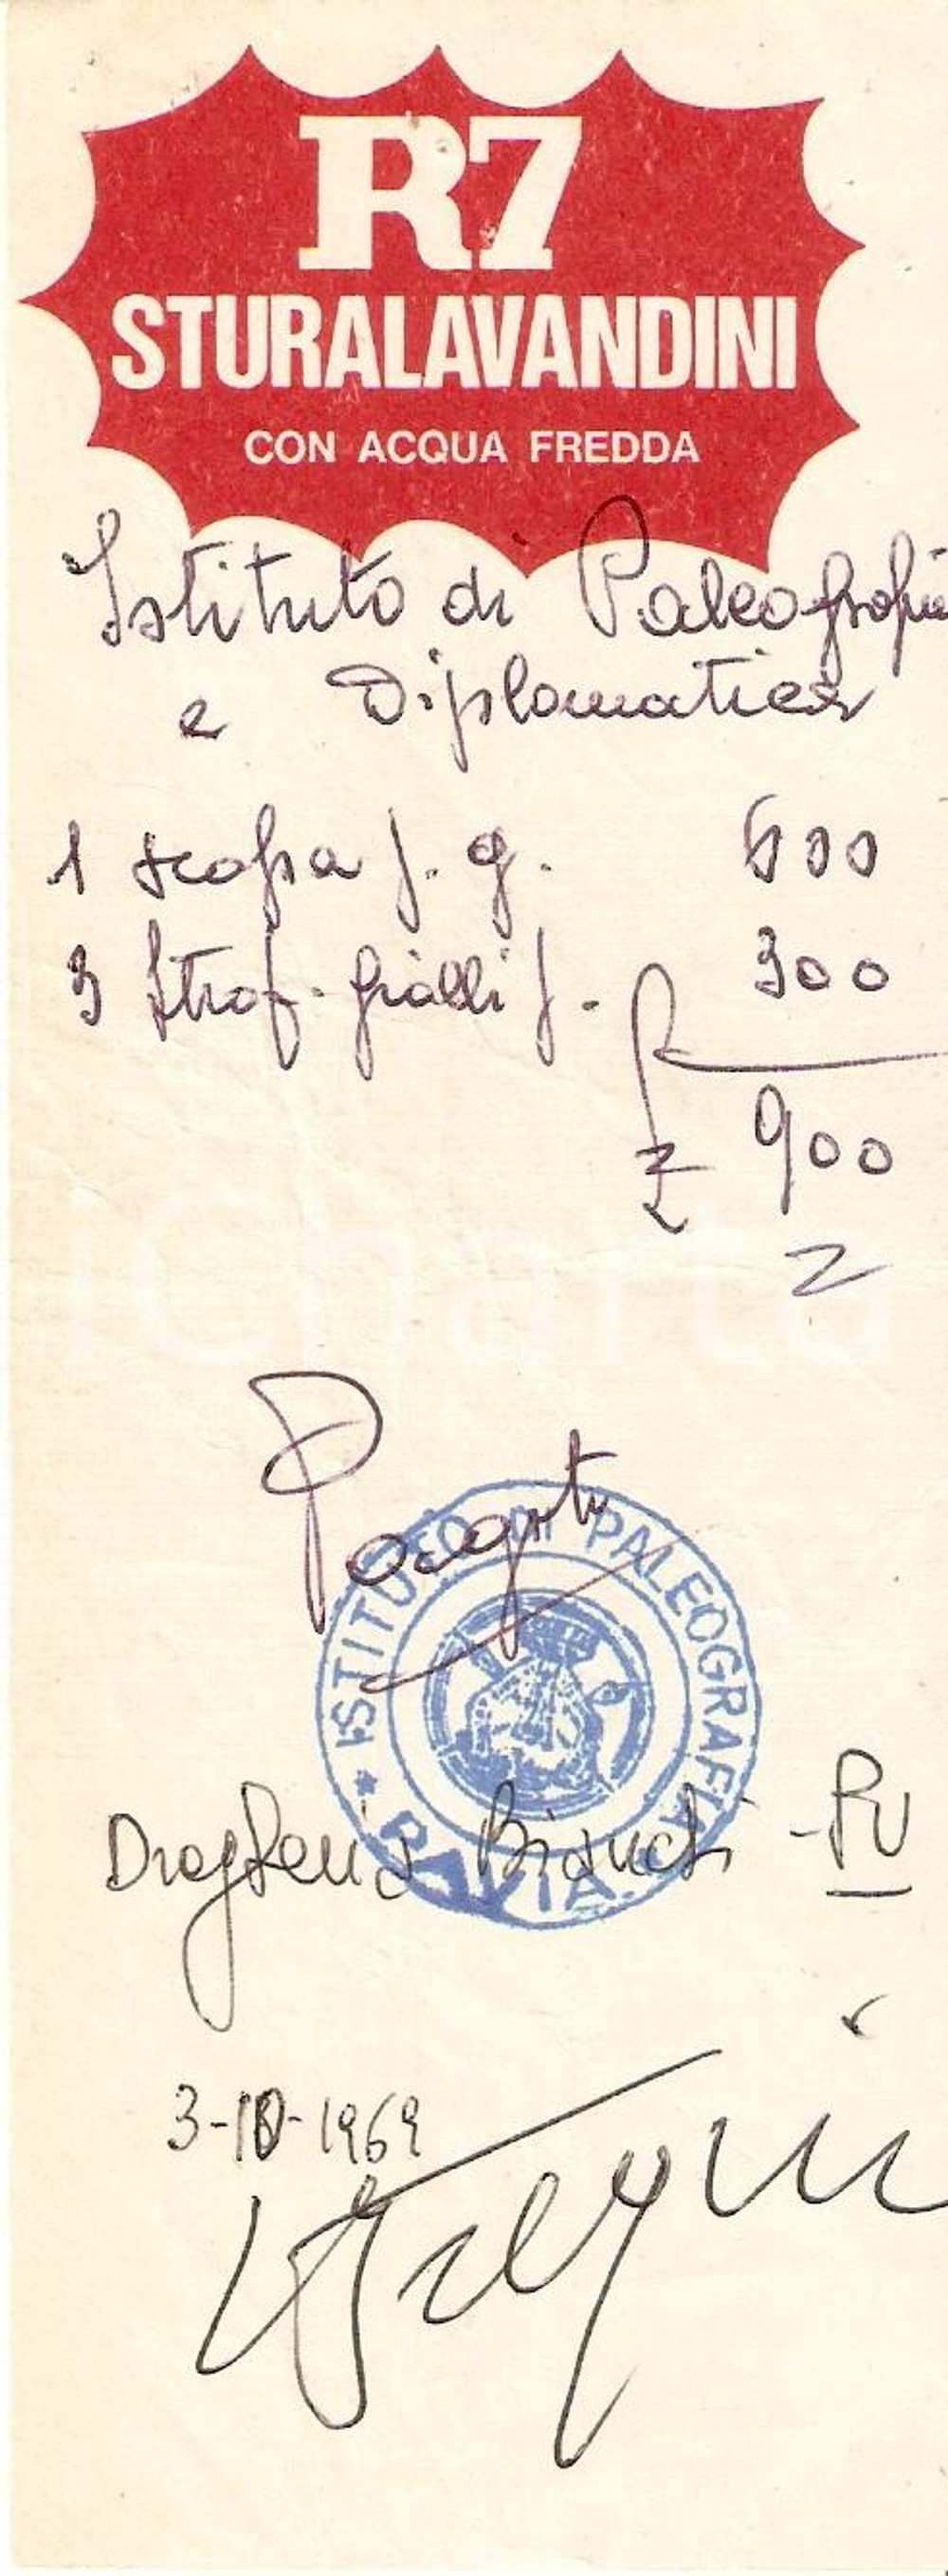 R7
STURALAVANDINI
CON ACQUA FREDDA
Istituto di Paleografia
e Diplomatica
1 scopa f. g. 600
3 Strof. gialli f. 300
£ 900
Pagato
ISTITUTO DI PALEOGRAFIA
* PAVIA
Drogheria Bianchi - PV
3-10-1969